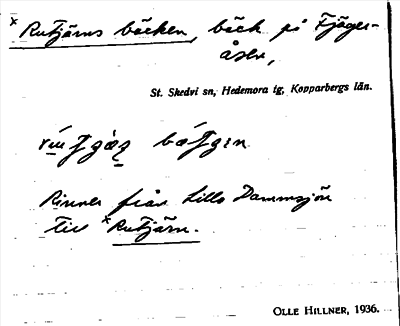 × Rutjärns bäcken, bäck på Fjäger-
åsen,
St. Skedvi sn, Hedemora tg, Kopparbergs län.
Rinner från Lilla Dammsjön
till × Rutjärn.
OLLE HILLNER, 1936.